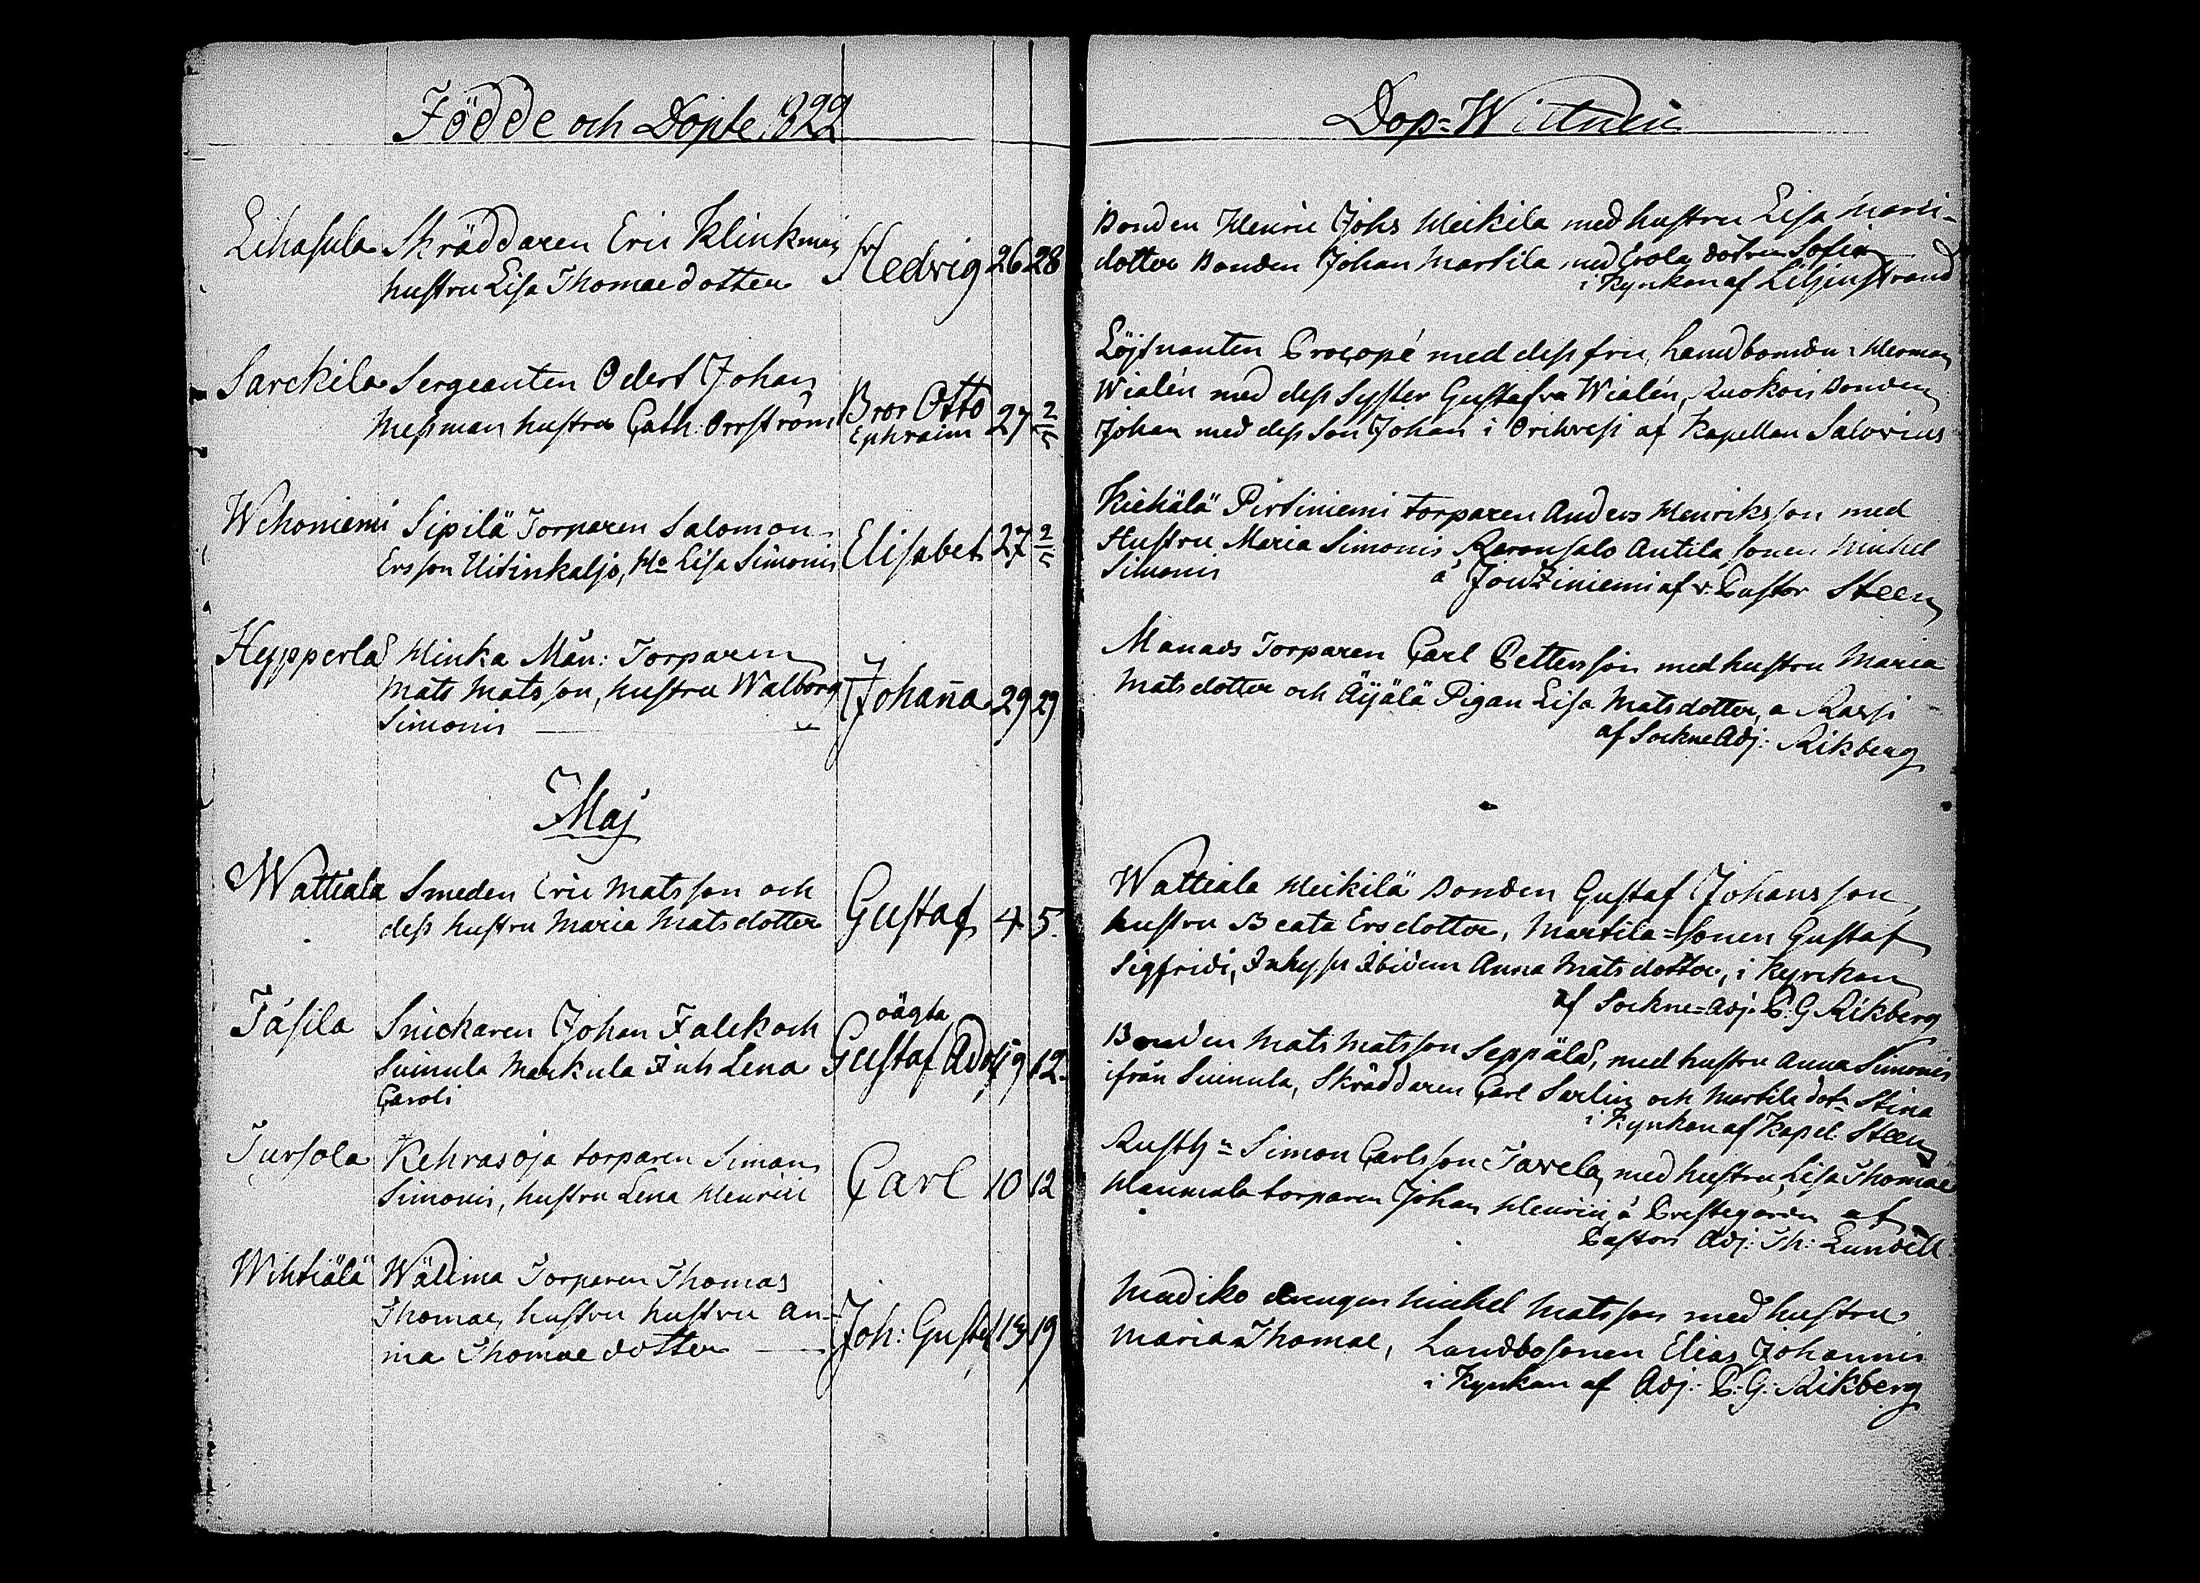 Födde och Döpte 1822
Lihasula Skräddaren Eric Klinkman
hustru Lisa Thomaedotter Hedvig 26 28
Sarckila Sergeanten Odert Johan
Nessman hustru Cath: Orrström Bror Otto
Ephraim 27 2/5
Wehoniemi Sipilä Torparen Salomon
Ersson Uitinkaljo, Ho Lisa Simonis Elisabet 27 2/5
Hepperla Hinka Mån: Torparen
Mats Matsson, hustru Walborg Johaña 29 29
Simonis
Maj
Wattiala Smeden Eric Matsson och
dess hustru Maria Matsdotter Gustaf 4 5.
Jäsilä Snickaren Johan Falck och oägta
Suinula Markula Inh Lena Gustaf Adolf 9 12
Caroli
Tursola Rehrasoja torparen Simon
Simonis, hustru Lena Henrici Carl 10 12
Wihtiälä Wälima Torparen Thomas
Thomae, hustru hustru An=
na Thomaedotter Joh: Gustaf 19
Dop=Wittnen
Bonden Henric Johs Heikila med hustru Lisa Marti-
dotter Bonden Johan Martila med Erola dottren Sofia
i Kyrkan af Liljenstrand
Löjtnanten Procopé med dess fru, Landbonden Herman
Wialén med dess Syster Gustafva Wialén, Ruokois Bonden
Johan med dess Son Johan i Orihvesi af Kapellan Salovius
Kiekälä Pirtiniemi torparen Anders Henriksson med
Hustru Maria Simonis Antila sonen Michel
Simonis å af v. Pastor Steen
Manads Torparen Carl Pettersson med hustru Maria
Matsdotter och Äijälä Pigan Lisa Matsdotter, a Rassi
af Sockne Adj: Rikberg
Wattiala Heikilä Bonden Gustaf Johansson,
hustru Beata Ersdotter, Martila=sonen Gustaf
Sigfridi, Inhyses Ibidem Anna Matsdotter, i Kyrckan
af Sockne=Adj. P. G Rikberg
Bonden Mats Matsson Seppälä, med hustru Anna Simonis
ifrån Suinula, Skräddaren Carl Sarlin och Martila dotr Stina
i Kyrkan af Kapel. Steen
Rusth: Simon Carlsson Tavela med hustru Lisa Thomae
torparen Johan Henrici, å Prestegården af
Pastors Adj: Th: Lundell
drengen Michel Matsson med hustru
Maria Thomae, Landbosonen Elias Johannis
i Kyrkan af Adj: P. G. Rikberg